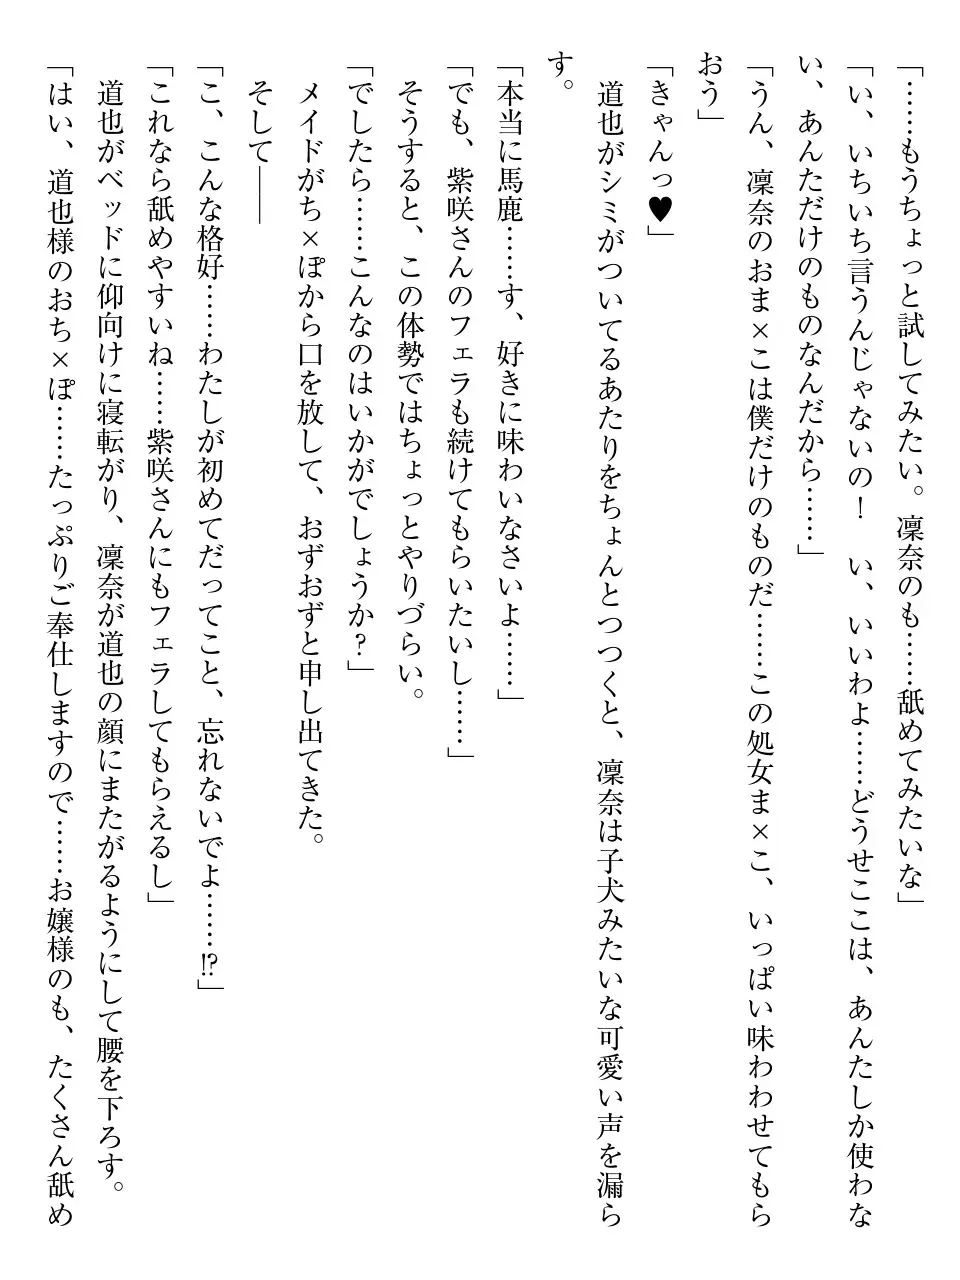 「……もうちょっと試してみたい。凜奈のも……舐めてみたいな」
「い、いちいち言うんじゃないの！　い、いいわよ……どうせここは、あんたしか使わな
い、あんただけのものなんだから……」
「うん、凜奈のおま×こは僕だけのものだ……この処女ま×こ、いっぱい味わわせてもら
おう」
「きゃんっ♥」
　道也がシミがついてるあたりをちょんとつつくと、凜奈は子犬みたいな可愛い声を漏ら
す。
「本当に馬鹿……す、好きに味わいなさいよ……」
「でも、紫咲さんのフェラも続けてもらいたいし……」
　そうすると、この体勢ではちょっとやりづらい。
「でしたら……こんなのはいかがでしょうか？」
　メイドがち×ぽから口を放して、おずおずと申し出てきた。
　そして――
「こ、こんな格好……わたしが初めてだってこと、忘れないでよ……!?」
「これなら舐めやすいね……紫咲さんにもフェラしてもらえるし」
　道也がベッドに仰向けに寝転がり、凜奈が道也の顔にまたがるようにして腰を下ろす。
「はい、道也様のおち×ぽ……たっぷりご奉仕しますので……お嬢様のも、たくさん舐め